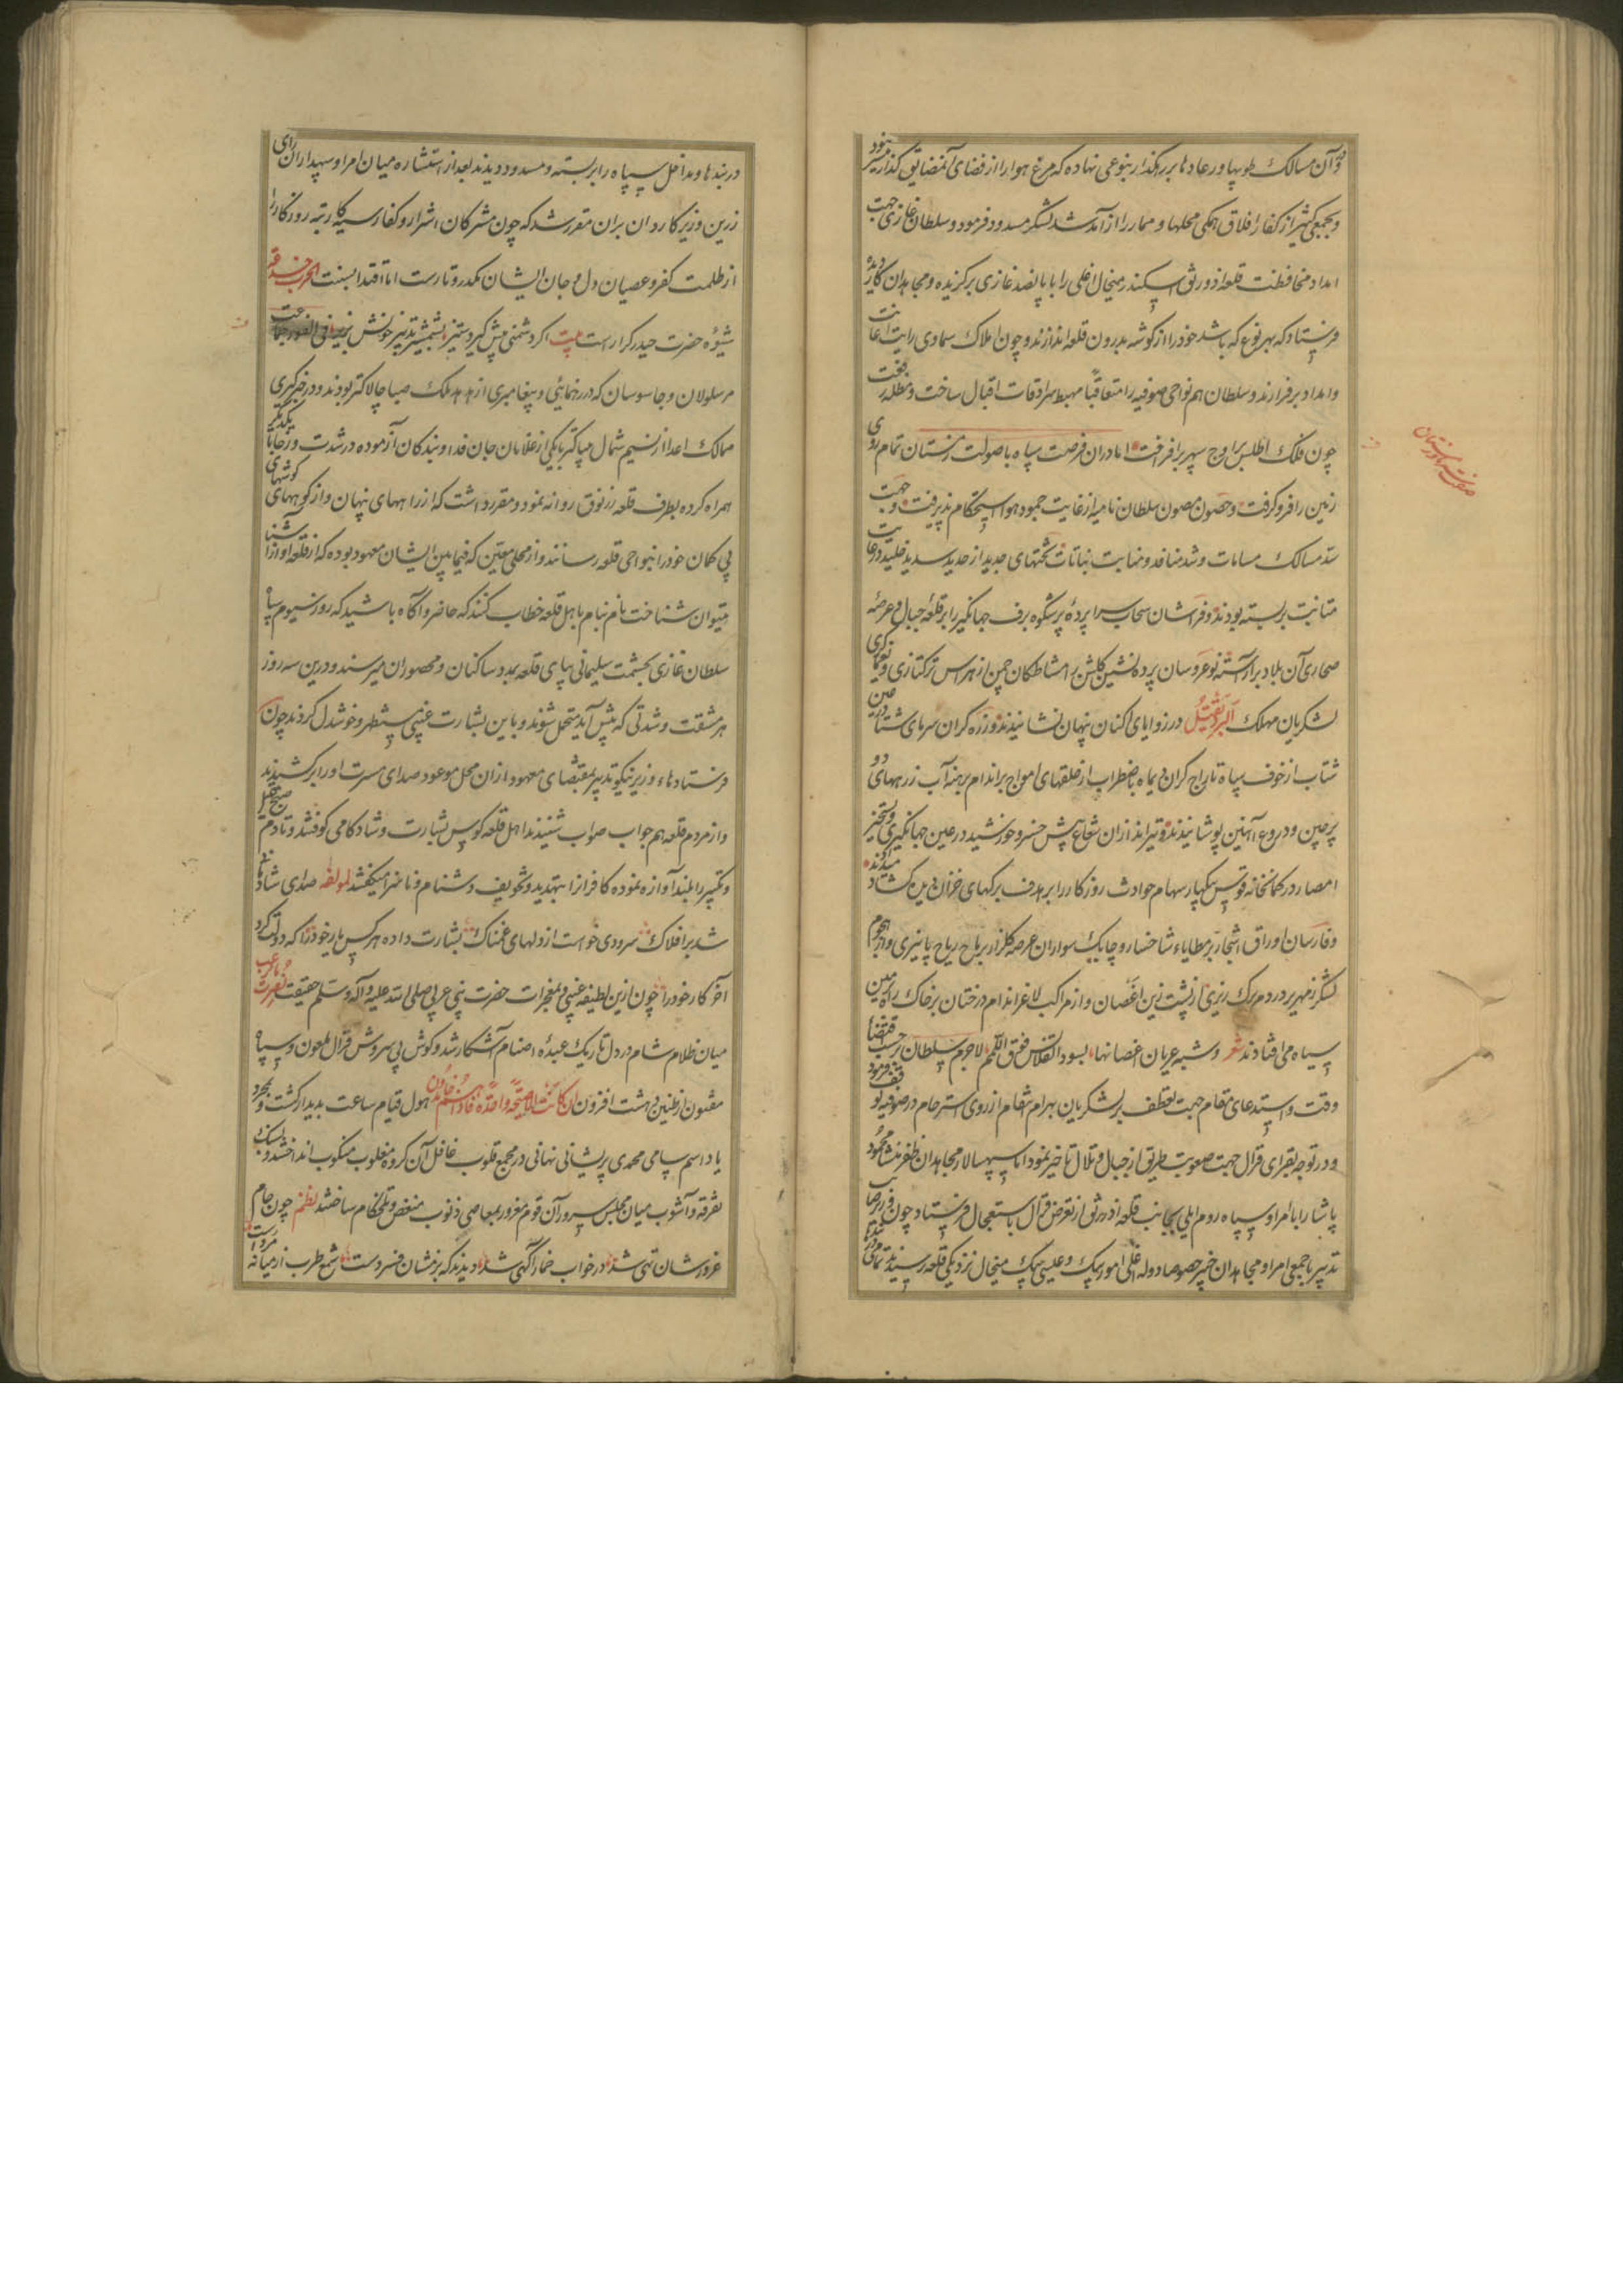 و آن مسالک طوپها و رعادها بر رهگذار بنوعی نهاده که مرغ هوا را از فضای آن مضایق گذار میسر نبود
و بجمعی کثیر از کفار افلاق همکی محلها و ممار را از آمد شد لشکر مسدود فرمود و سلطان غازی جهت
امداد محافظت قلعه اذورنق اسکندر میخال اغلی را با پانصد غازی برگزیده و مجاهدان کار دیده
فرستاد که بهر نوع که باشد خود را از گوشه بدرون قلعه اندازند و چون املاک سماوی رایت اعانت
و امداد برفرازند و سلطان هم نواحی صوفیه را متعاقبا مهبط سرادقات اقبال ساخت و مظله رفعت
چون فلک اطلس بر اوج سپهر برافراخت اما دران فرصت سپاه باصولت زمستان تمام روی
زمین را فرو گرفت و حصون مصون سلطان نامیه از غایت جمود هوا استحکام پذیرفت و جهت
سد مسالک مسامات و شد منافد و منابت نباتات تختهای جدید از حدید سدید جلید در غایت
متانت بر بسته بودند و فراشان سحاب سراپرده پرشکوه برف جهانگیر را بر قلعه جبال و عرصه
صحاری آن بلاد برآراسته نوعروسان پرده نشین گلشن را مشاطکان چمن از هراس ترکتازی و یغماگری
لشکریان مهلک البرد یقتل در زوایای اکنان پنهان نشانیدند و زره گران سرمای شتا در عین
شتاب از خوف سپاه تاراج گران دیماه باضطراب از حلقهای امواج بر اندام برهنه آب زرههای
پرچین و دروع آهنین پوشانیدند و تیراندازان شعاع پیش خسرو خورشید در عین جهانگیری و تسخیر
امصار در کمانخانه قوس یکباره سهام حوادث روزگار را بر هدف برگهای خزان دین گشاد میدادند
و فارسان اوراق اشجار بر مطایاء شاخسار و چابک سواران عرصه گلزار بر باح ریاح پاییزی و از هجوم
لشکر زمهریر در دم برگ ریزی از پشت زین اغصان و از مراکب لاغر اندام درختان بر خاک راه زمین
سیاه می افتادند شعر و شبه عریان اغصانها بسود القلاس فوق اللمم لاجرم سلطان بر حسب اقتضاء
وقت و استدعای مقام جهت تعطف بر لشکریان بهرام انتقام از روی استرحام در صوفیه توقف فرمود
و در توجه بقرای قرال جهت صعوبت طریق از جبال و تلال تاخیر نمود اما سپهسالار مجاهدان ظفر منشا محمود
پاشا را با امرا و سپاه روم ایلی بجانب قلعه اذورنق از تعرض قرال باستعجال فرستاد چون وزیر صایب
تدبیر با جمعی امرا و مجاهدان خبیر خصوصا دوله اغلی امور بیک و عیسی بیک میخال نزدیکی قلعه رسیدند تمامی
صفت زمستان
دربندها و مداخل سپاه را بر بسته و مسدود دیدند بعد از استشاره میان امرا و سپهداران رای
زرین وزیر کاردان بران مقرر شد که چون مشرکان اشرار و کفار سیه کار رتبه روزگار را
از ظلمت کفر و عصیان دل و جان ایشان مکدر و تارست اما اقتدا بسنت الحرب خدعة
شیوه حضرت حیدر کرارست بیت اگر دشمنی پیش گیرد ستیز بشمشیر تدبیر خونش بریز فی الفور جماعت
مرسلولان و جاسوسان که در رهنمائی و پیغامبری از هدهد ملک صبا چالاکتر بودند و در خبرگیری
ممالک اعدا از نسیم شمال سبکتر با یکی از غلامان جان فدا و بندگان آزموده در شدت و رخا با یکدیگر
همراه کرده بطرف قلعه زرنوق روانه نمود و مقرر داشت که از راههای پنهان و از کوههای گوشهای
پی گمان خود را بنواحی قلعه رسانند و از محلی معین که فیمابین ایشان معهود بوده که از قلعه آواز آشنا
میتوان شناخت نام بنام باهل قلعه خطاب کنند که حاضر و آگاه باشید که روز سیوم سپاه
سلطان غازی بحشمت سلیمانی بپای قلعه بمدد ساکنان و محصوران میرسند و درین سه روز
هر مشقت و شدتی که پیش آید متحمل شوند و باین بشارت غیبی مستظهر و خوشدل کردند چون
فرستادهاء وزیر نیکو تدبیر بمقتضای معهود ازان محل موعود صدای مسرت او را بر کشیدند
و از مردم قلعه هم جواب صواب شنیدند اهل قلعه کوس بشارت و شادکامی کوفتند و تا دم صبح تهلیل
و تکبیر را بلند آوازه نموده کافرانرا بتهدید و تخویف دشنام و ناسزا میکفتند لمولفه صدای شادمانی
شد بر افلاک سرودی خواست از دلهای غمناک بشارت داده هر کس یار خود را که دولت کرد
آخر کار خود را چون ازین لطیفه غیبی و معجزات حضرت نبی عربی صلی الله علیه و آله و سلم حقیقت نصرت بالرعب
میان ظلام شام در دل تاریک عبده اصنام آشکار شد و کوش بی سروش قرال ملعون و سپاه
مفتون از طنین دهشت افزون ان کانت الا صیحة واحدة فاذا هم خامدون هول قیام ساعت پدیدار گشت و بمجرد
یاد اسم سامی محمدی پریشانی نهانی در مجمع قلوب غافل آن گروه مغلوب منکوب انداختند و بسنک
تفرقه و آشوب میان مجلس سرور آن قوم مغرور بمعاصی ذنوب منغص و تلخکام ساختند نظم چون جام
غرورشان تهی شد در خواب خمار آگهی شد دیدند که بزمشان فسردست شمع طرب از میانه مردست